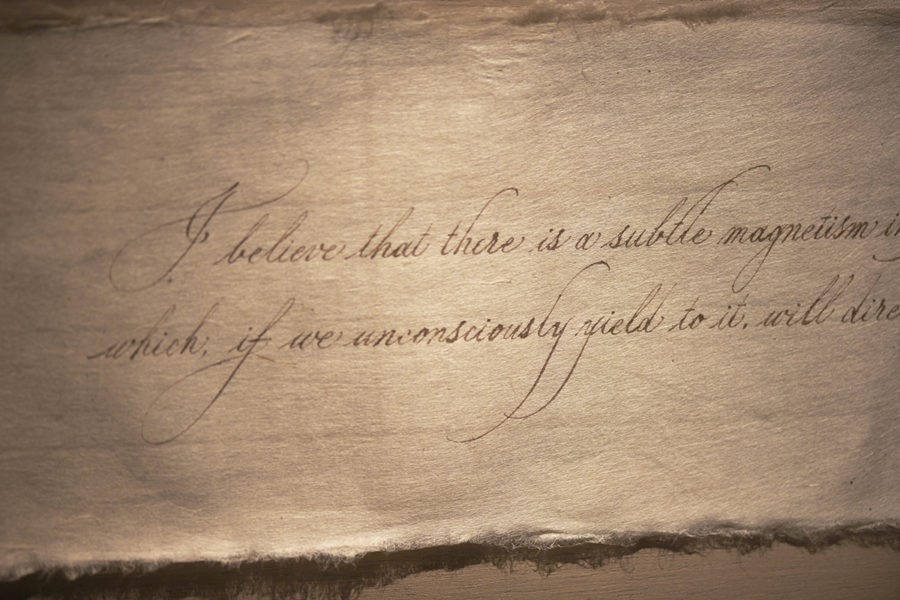 I believe that there is a subtle magnetism in
which, if we unconsciously yield to it, will dire